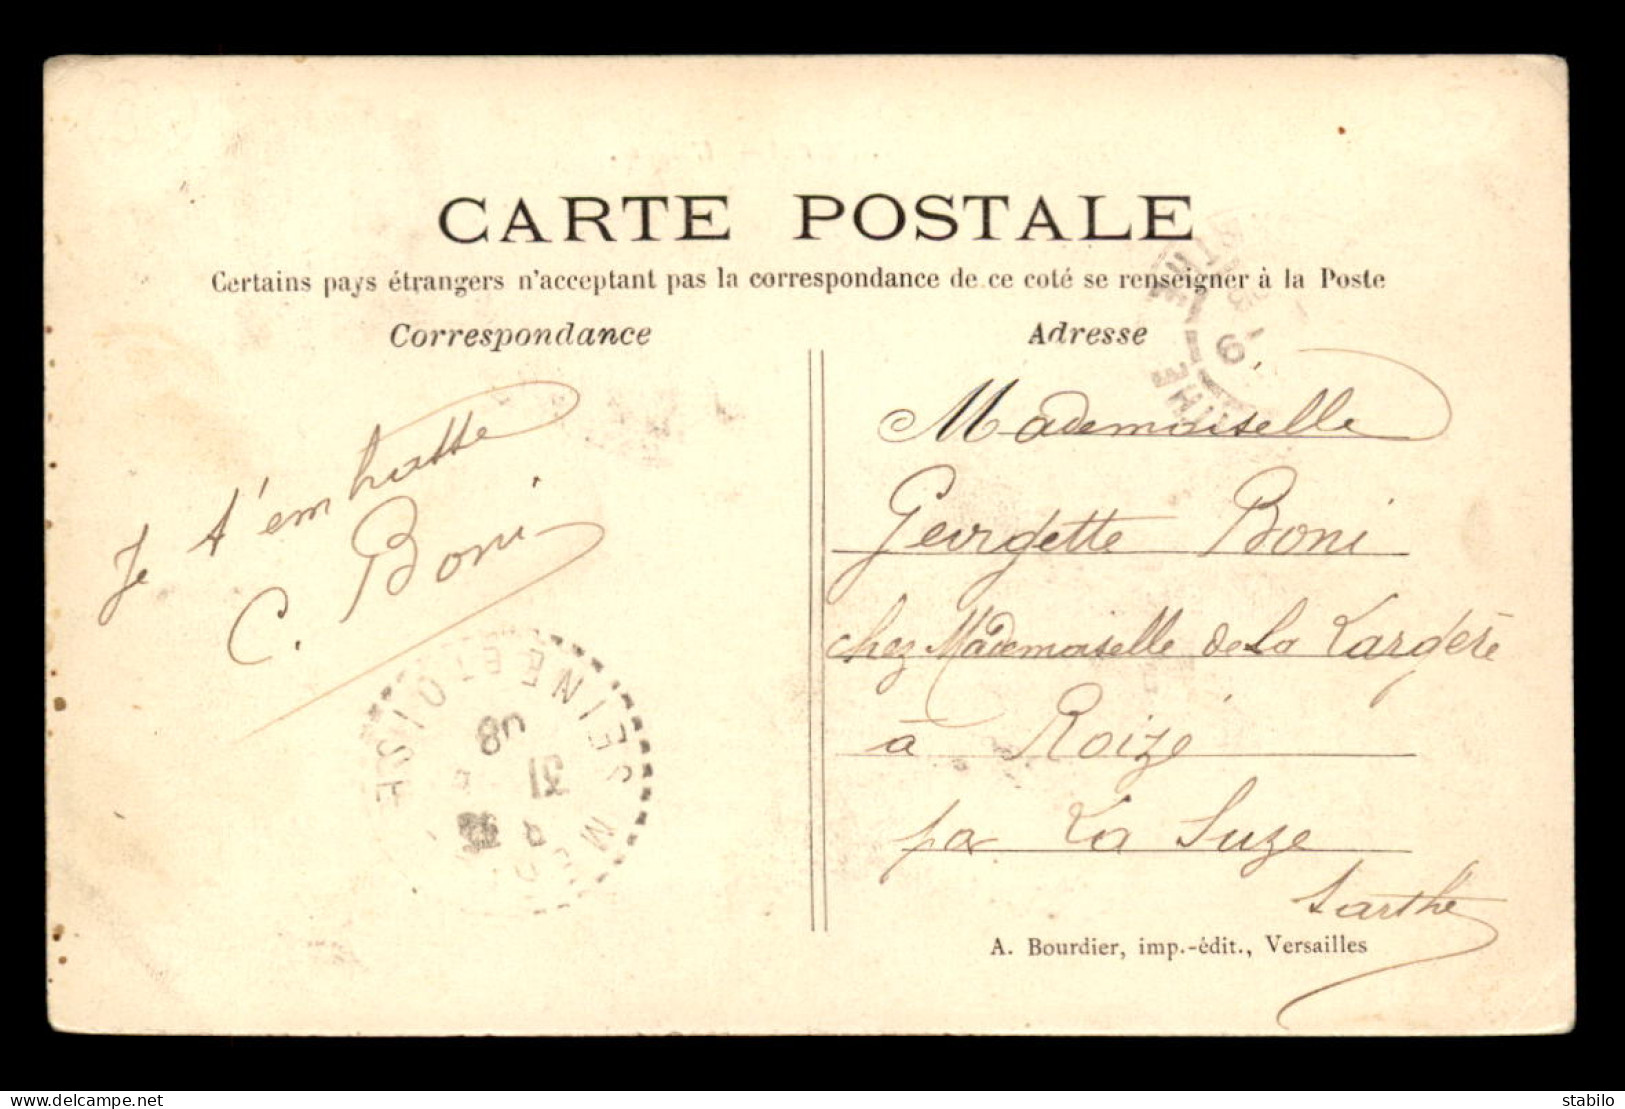 CARTE POSTALE
Certains pays étrangers n'acceptant pas la correspondance de ce coté se renseigner à la Poste
Correspondance
Je t'embrasse
C. Boni
SEINE ET OISE
31
08
Adresse
Mademoiselle
Georgette Boni
chez Mademoiselle de La Largère
à Roizé
par La Suze
Sarthe
A. Bourdier, imp.-édit., Versailles
stabilo